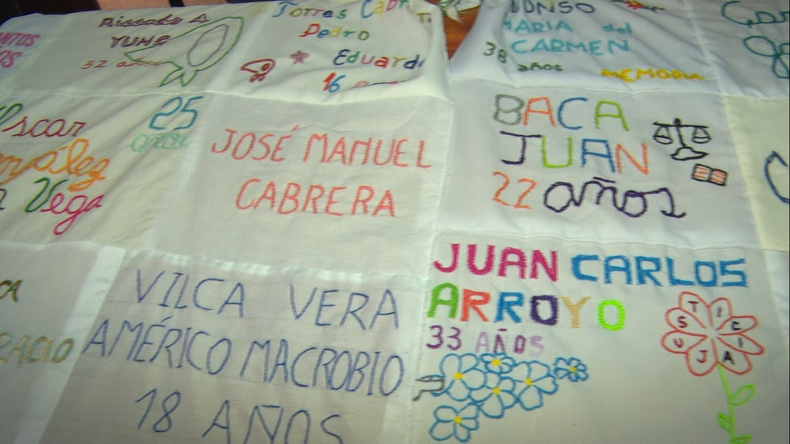 YUHE
32 años
Torres
Pedro
Eduardo
16
ALONSO
MARIA del
CARMEN
38 años
MEMORIA
25
Oscar
González
Vega
JOSÉ MANUEL
CABRERA
BACA
JUAN
22 años
VILCA VERA
AMÉRICO MACROBIO
18 AÑOS
JUAN CARLOS
ARROYO
33 AÑOS
JUSTICIA